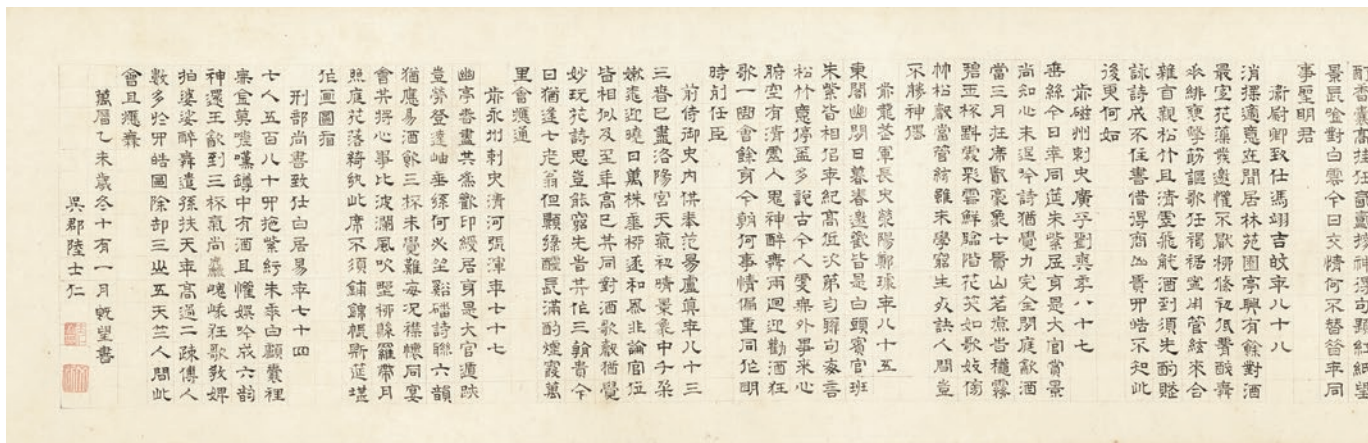 景長吟對白雲今日交情何不替昝年同
事聖明君
衛尉卿致仕馮翊吉旼年八十八
消搖適意在閒居林苑園亭興有餘對酒
最宜花藻發邀懽不厭柳條初低𦝫醉舞
垂緋褎擊筯謳歌任褐裾寧用管絃來合
雜首親松竹且清虛飛觥酒到須先酌賦
詠詩成不住書借得商山賢四皓不知此
後更何如
前磁州刺史廣平劉真年八十七
垂絲今日幸同筵朱紫居身是大官賞景
尚知心未退吟詩猶覺力完全閒庭飲酒
當三月狂席歡豪象七賢山茗煮昝穐霧
碧玉杯斟處彩雲鮮臨階花笑如歌妓傍
竹松聲當管絃雖未學窮生死訣人間豈
不勝神僊
前龍武軍長史滎陽鄭璩年八十五
東閣幽閒日暮春邀歡皆是白頭賓官班
朱紫皆相侣年紀高低次第勻聯句每言
松竹意停盃多說古今人更無外事來心
腑空有清虛入鬼神醉舞兩迴迎勸酒狂
歌一曲會餘身今朝何事情偏重同作明
時列任臣
前侍御史內供奉范陽盧真年八十三
三春已盡洛陽宮天氣初晴景象中千朵
嫩桃迎曉日萬株垂栁逐和風非論官位
皆相似及至年高已共同對酒歌聲猶覺
妙玩花詩思豈能窮先昝共作三朝貴今
日猶逢七老翁但願綠醽長滿酌煙霞萬
里會應通
前永州刺史清河張渾年七十七
幽亭春盡共為歡印綬居身是大官遁跡
豈勞登遠岫垂絲何必坐谿磻詩聯六韻
猶應易酒飲三杯未覺難每況襟懷同宴
會共將心事比波瀾風吹野柳縣羅帶日
照庭花落綺紈此席不須鋪錦帳斯筵堪
作畫圖看
刑部尚書致仕白居易年七十四
七人五百八十四拖紫紆朱垂白鬚囊裡
無金莫嗟嘆罇中有酒且懽娛吟成六韵
神還王飲到三杯氣尚麤嵬峨狂歌教婢
拍婆娑醉舞遣孫扶天年高過二疎傅人
數多於四皓圖除却三山五天竺人間此
會且應無
萬曆乙未歲冬十有一月既望書
吳郡陸士仁